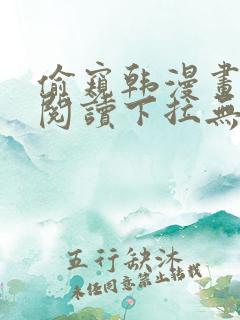 偷窺韩漫畫
閱讀下拉無
五行缺沐
未经同意禁止转载